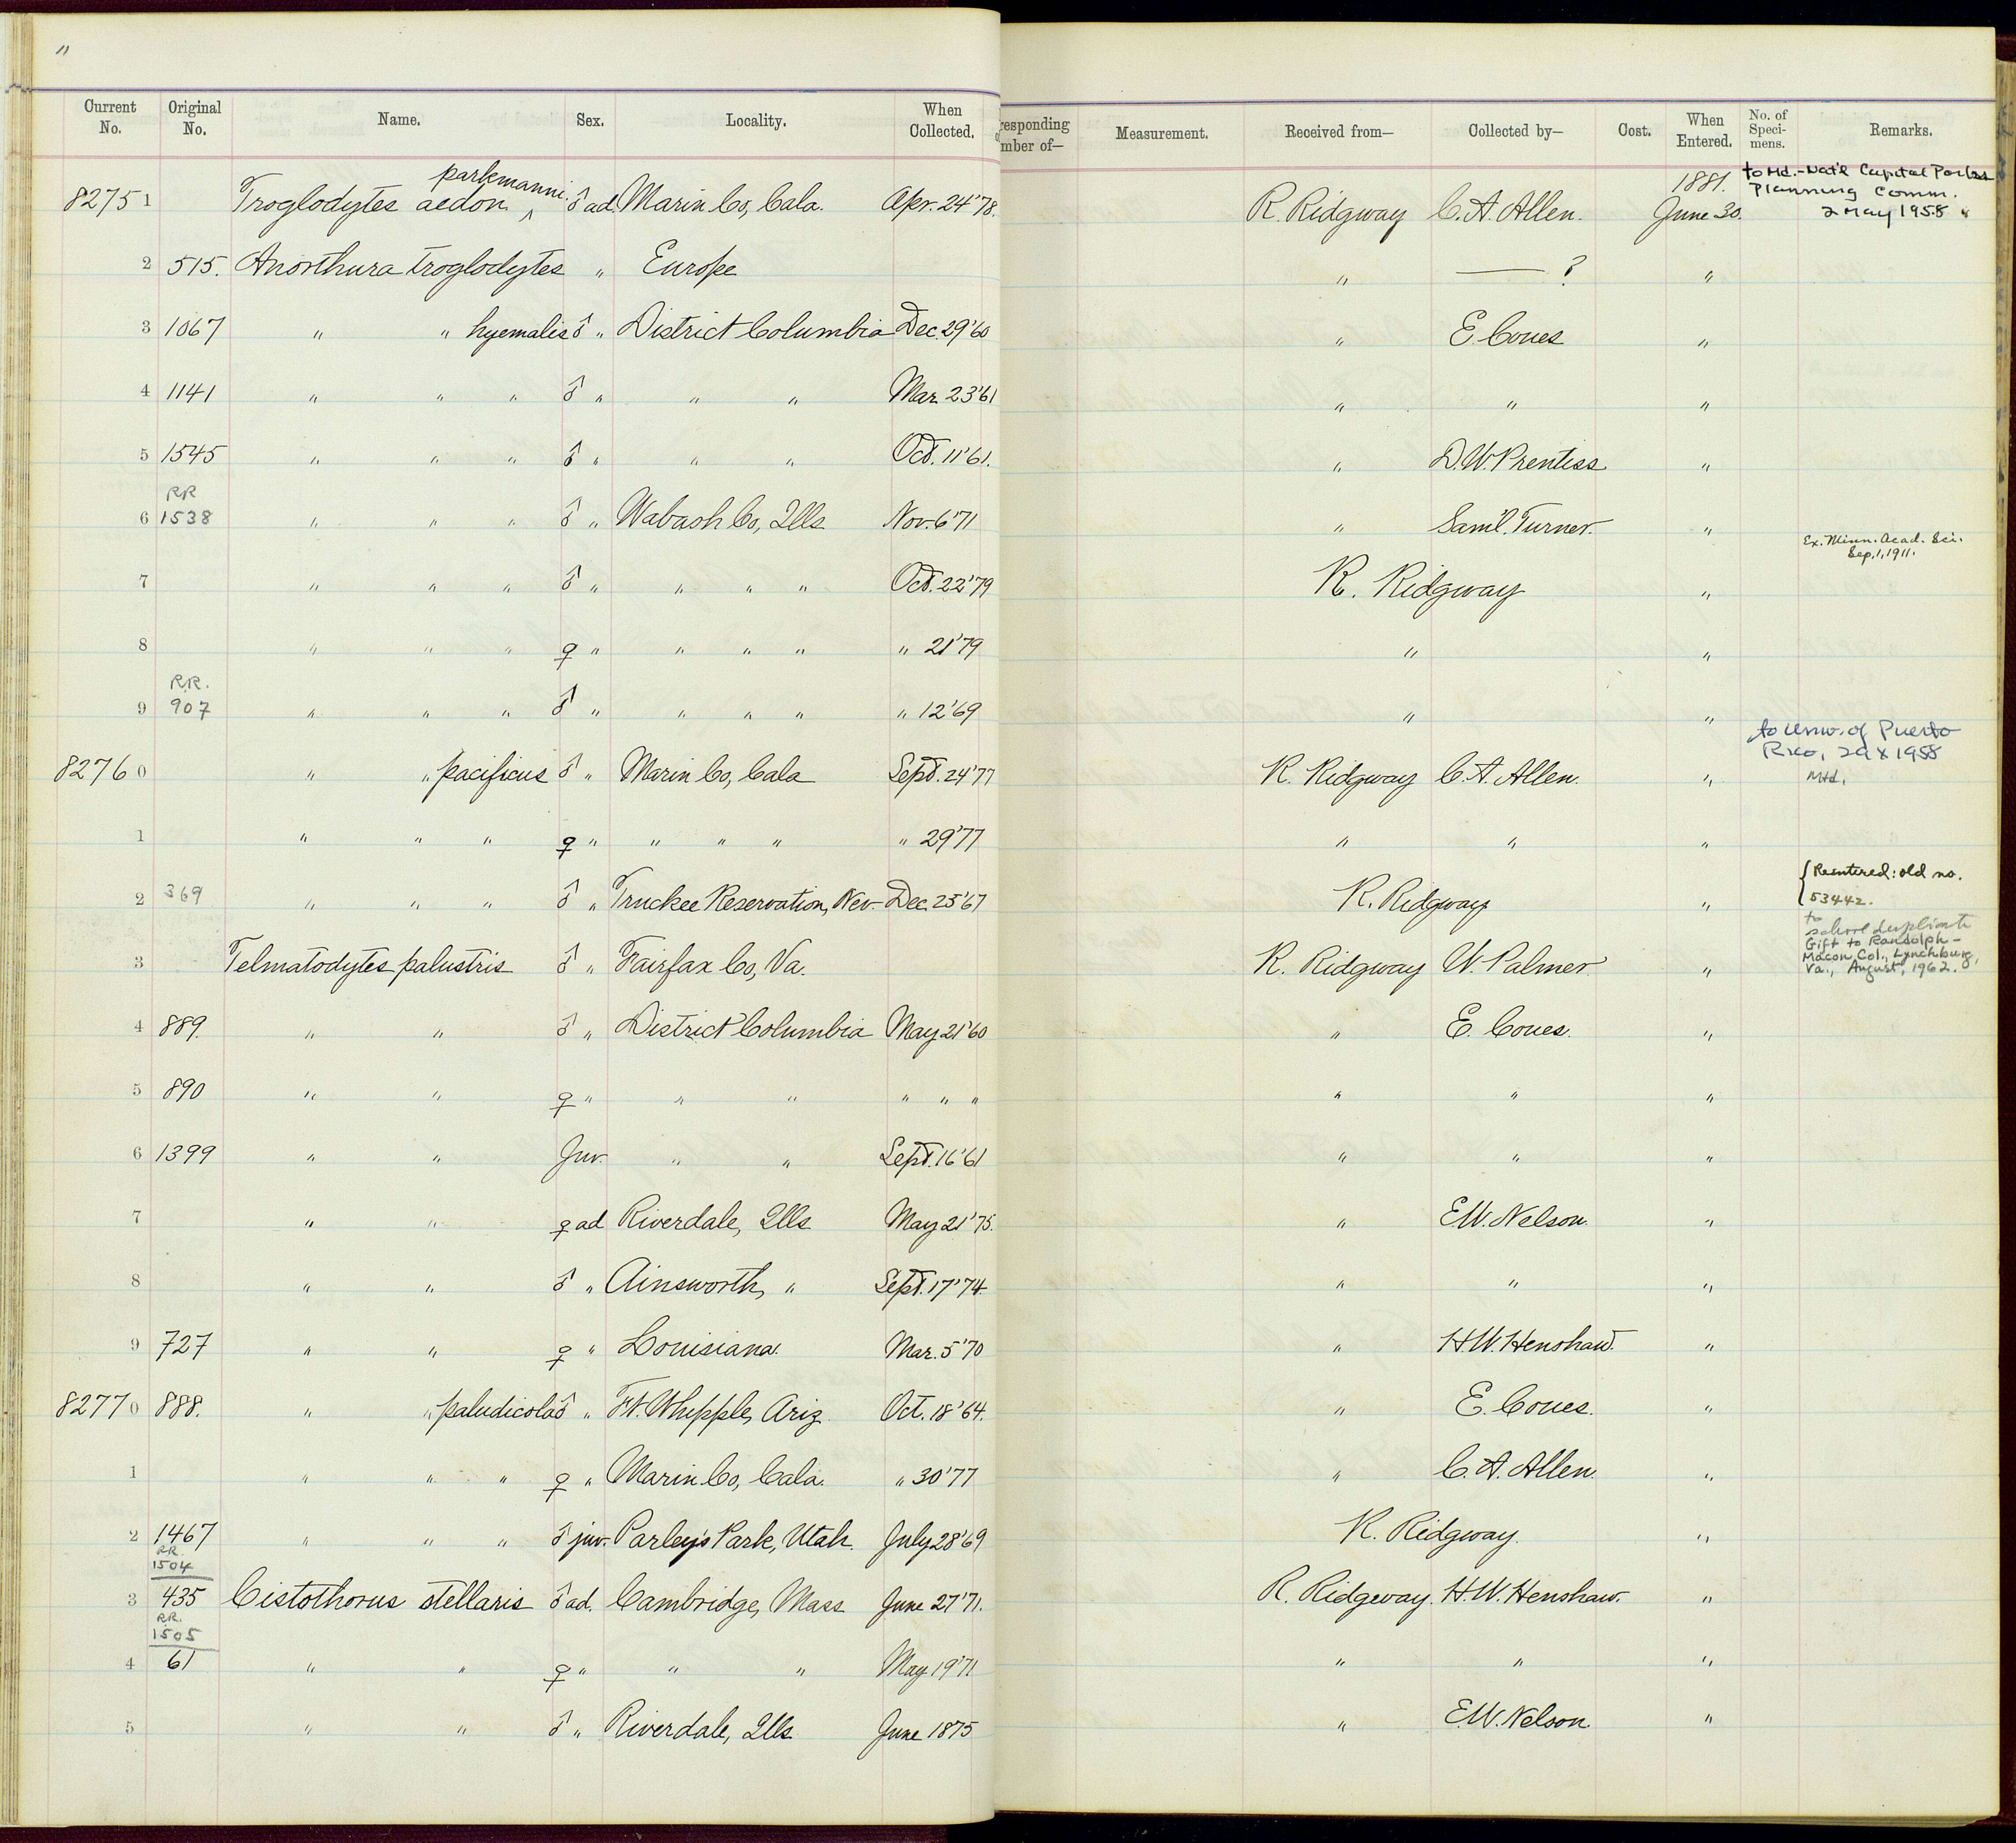 "
Current No. Original No. Name. Sex. Locality. When Collected. responding mber of— Measurement. Received from— Collected by— Cost. When Entered. No. of Speci- mens. Remarks.
82751 Troglodytes aedon parkmanni. ^ ♂ ad. Marin Co, Cala. Apr. 24 '78. R. Ridgway C. A. Allen. 1881. June 30. to Md.-Nat'l Capital Parks Planning Comm. 2 May 1958 "
2 515. Anorthura troglodytes " Europe " —— ? "
3 1067 " " hyemalis ♂ " District Columbia Dec. 29 '60 " E. Coues "
4 1141 " " " ♂ " " " Mar. 23 '61 " " "
5 1545 " " " ♂ " " " Oct. 11 '61. " D. W. Prentiss "
6 RR 1538 " " " ♂ " Wabash Co, Ills Nov. 6 '71 " Sam'l. Turner. " Ex. Minn. Acad. Sci. Sep. 1, 1911.
7 " " " ♂ " " " " Oct. 22 '79 R. Ridgway "
8 " " " ♀ " " " " " 21 '79 " "
9 R.R. 907 " " " ♂ " " " " " 12 '69 " "
82760 " " pacificus ♂ " Marin Co, Cala Sept. 24 '77 R. Ridgway C. A. Allen. " to Univ. of Puerto Rico, 29 X 1958 Mtd.
1 " " " ♀ " " " " " 29 '77 " " "
2 369 " " " ♂ " Truckee Reservation, Nev. Dec. 25 '67 R. Ridgway " { Reentered: old no. 53442.
3 Telmatodytes palustris ♂ " Fairfax Co, Va. R. Ridgway W. Palmer " to school duplicate Gift to Randolph- Macon Col., Lynchburg, Va., August, 1962.
4 889. " " ♂ " District Columbia May 21 '60 " E. Coues. "
5 890 " " ♀ " " " " " " " " "
6 1399 " " Juv. " " Sept. 16 '61 " " "
7 " " ♀ ad Riverdale, Ills May 21 '75. " E. W. Nelson. "
8 " " ♂ " Ainsworth, " Sept. 17 '74. " " "
9 727 " " ♀ " Louisiana. Mar. 5 '70 " H. W. Henshaw. "
82770 888. " " paludicola ♂ " Ft. Whipple, Ariz. Oct. 18 '64. " E. Coues. "
1 " " " ♀ " Marin Co, Cala. " 30 '77 " C. A. Allen. "
2 1467 " " " ♂ juv. Parley's Park, Utah. July 28 '69 R. Ridgway. "
3 RR 1504 435 Cistothorus stellaris ♂ ad. Cambridge, Mass June 27 '71. R. Ridgway. H. W. Henshaw. "
4 RR. 1505 61 " " ♀ " " " May 19 '71 " " "
5 " " ♂ " Riverdale, Ills June 1875 " E. W. Nelson. "